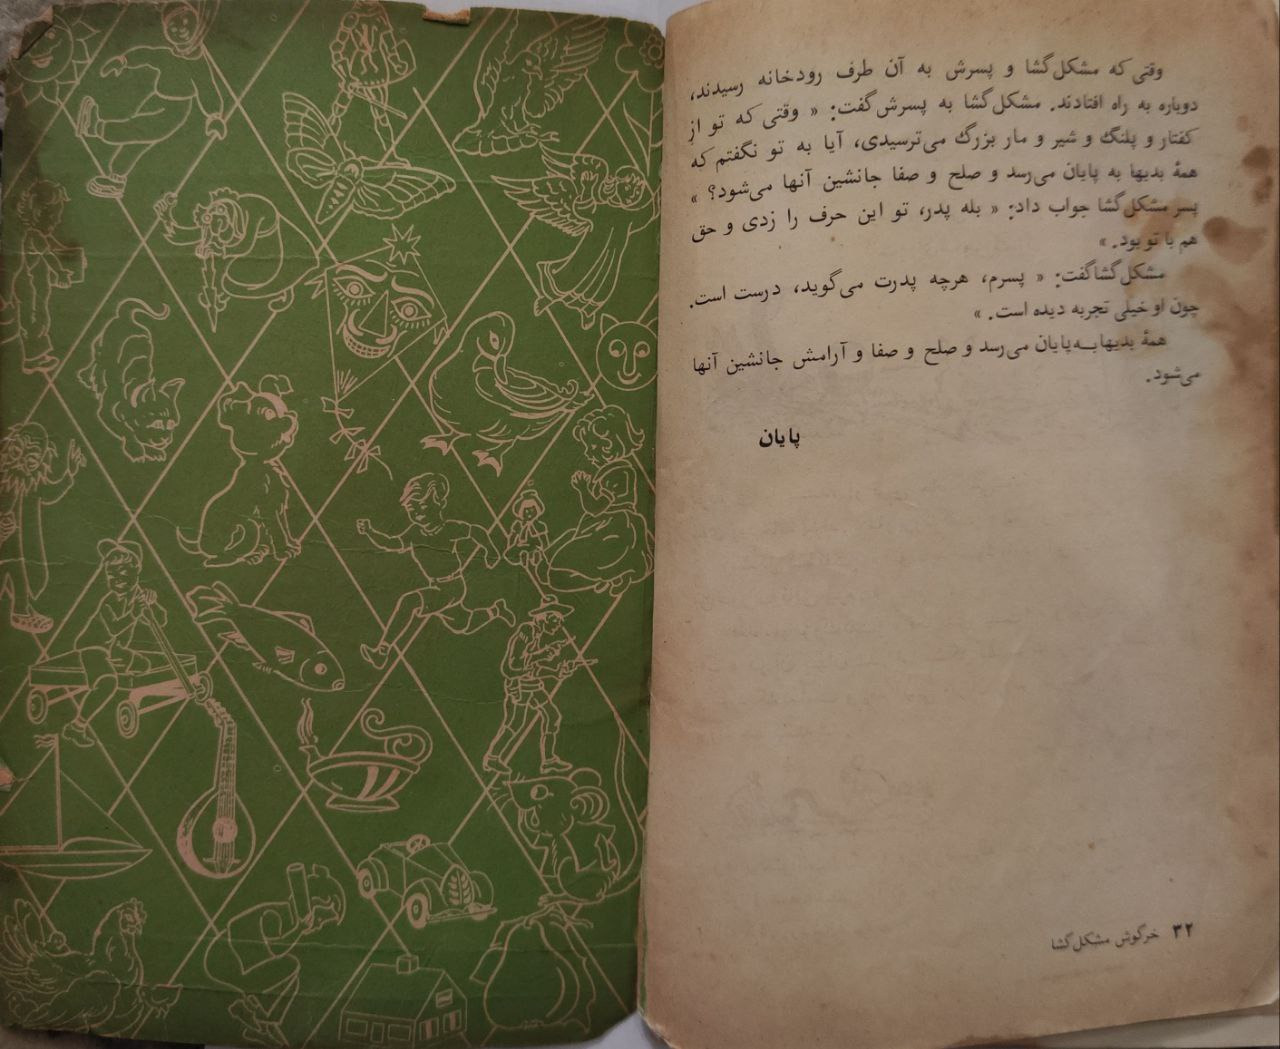 وقتی که مشکل‌گشا و پسرش به آن طرف رودخانه رسیدند،
دوباره به راه افتادند. مشکل‌گشا به پسرش گفت: « وقتی که تو از
کفتار و پلنگ و شیر و مار بزرگ می‌ترسیدی، آیا به تو نگفتم که
همهٔ بدیها به پایان می‌رسد و صلح و صفا جانشین آنها می‌شود؟ »
پسر مشکل‌گشا جواب داد: « بله پدر، تو این حرف را زدی و حق
هم با تو بود. »
مشکل‌گشا گفت: « پسرم، هرچه پدرت می‌گوید، درست است.
چون او خیلی تجربه دیده است. »
همهٔ بدیها به پایان می‌رسد و صلح و صفا و آرامش جانشین آنها
می‌شود.
پایان
۳۲ خرگوش مشکل‌گشا